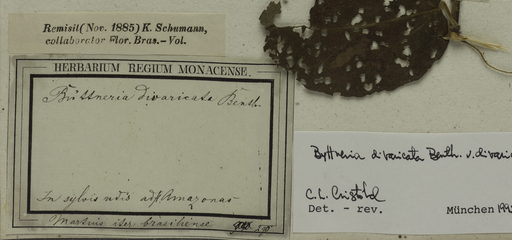 Remisit (Nov. 1885) K. Schumann,
collaborator Flor. Bras.-Vol.
HERBARIUM REGIUM MONACENSE.
Büttneria divaricata Benth.
In sylvis udis ad fl. Amazonas
Martius iter brasiliense
Byttneria divaricata Benth. v. divaric
C. L. Cristóbal
Det. - rev.
München 199